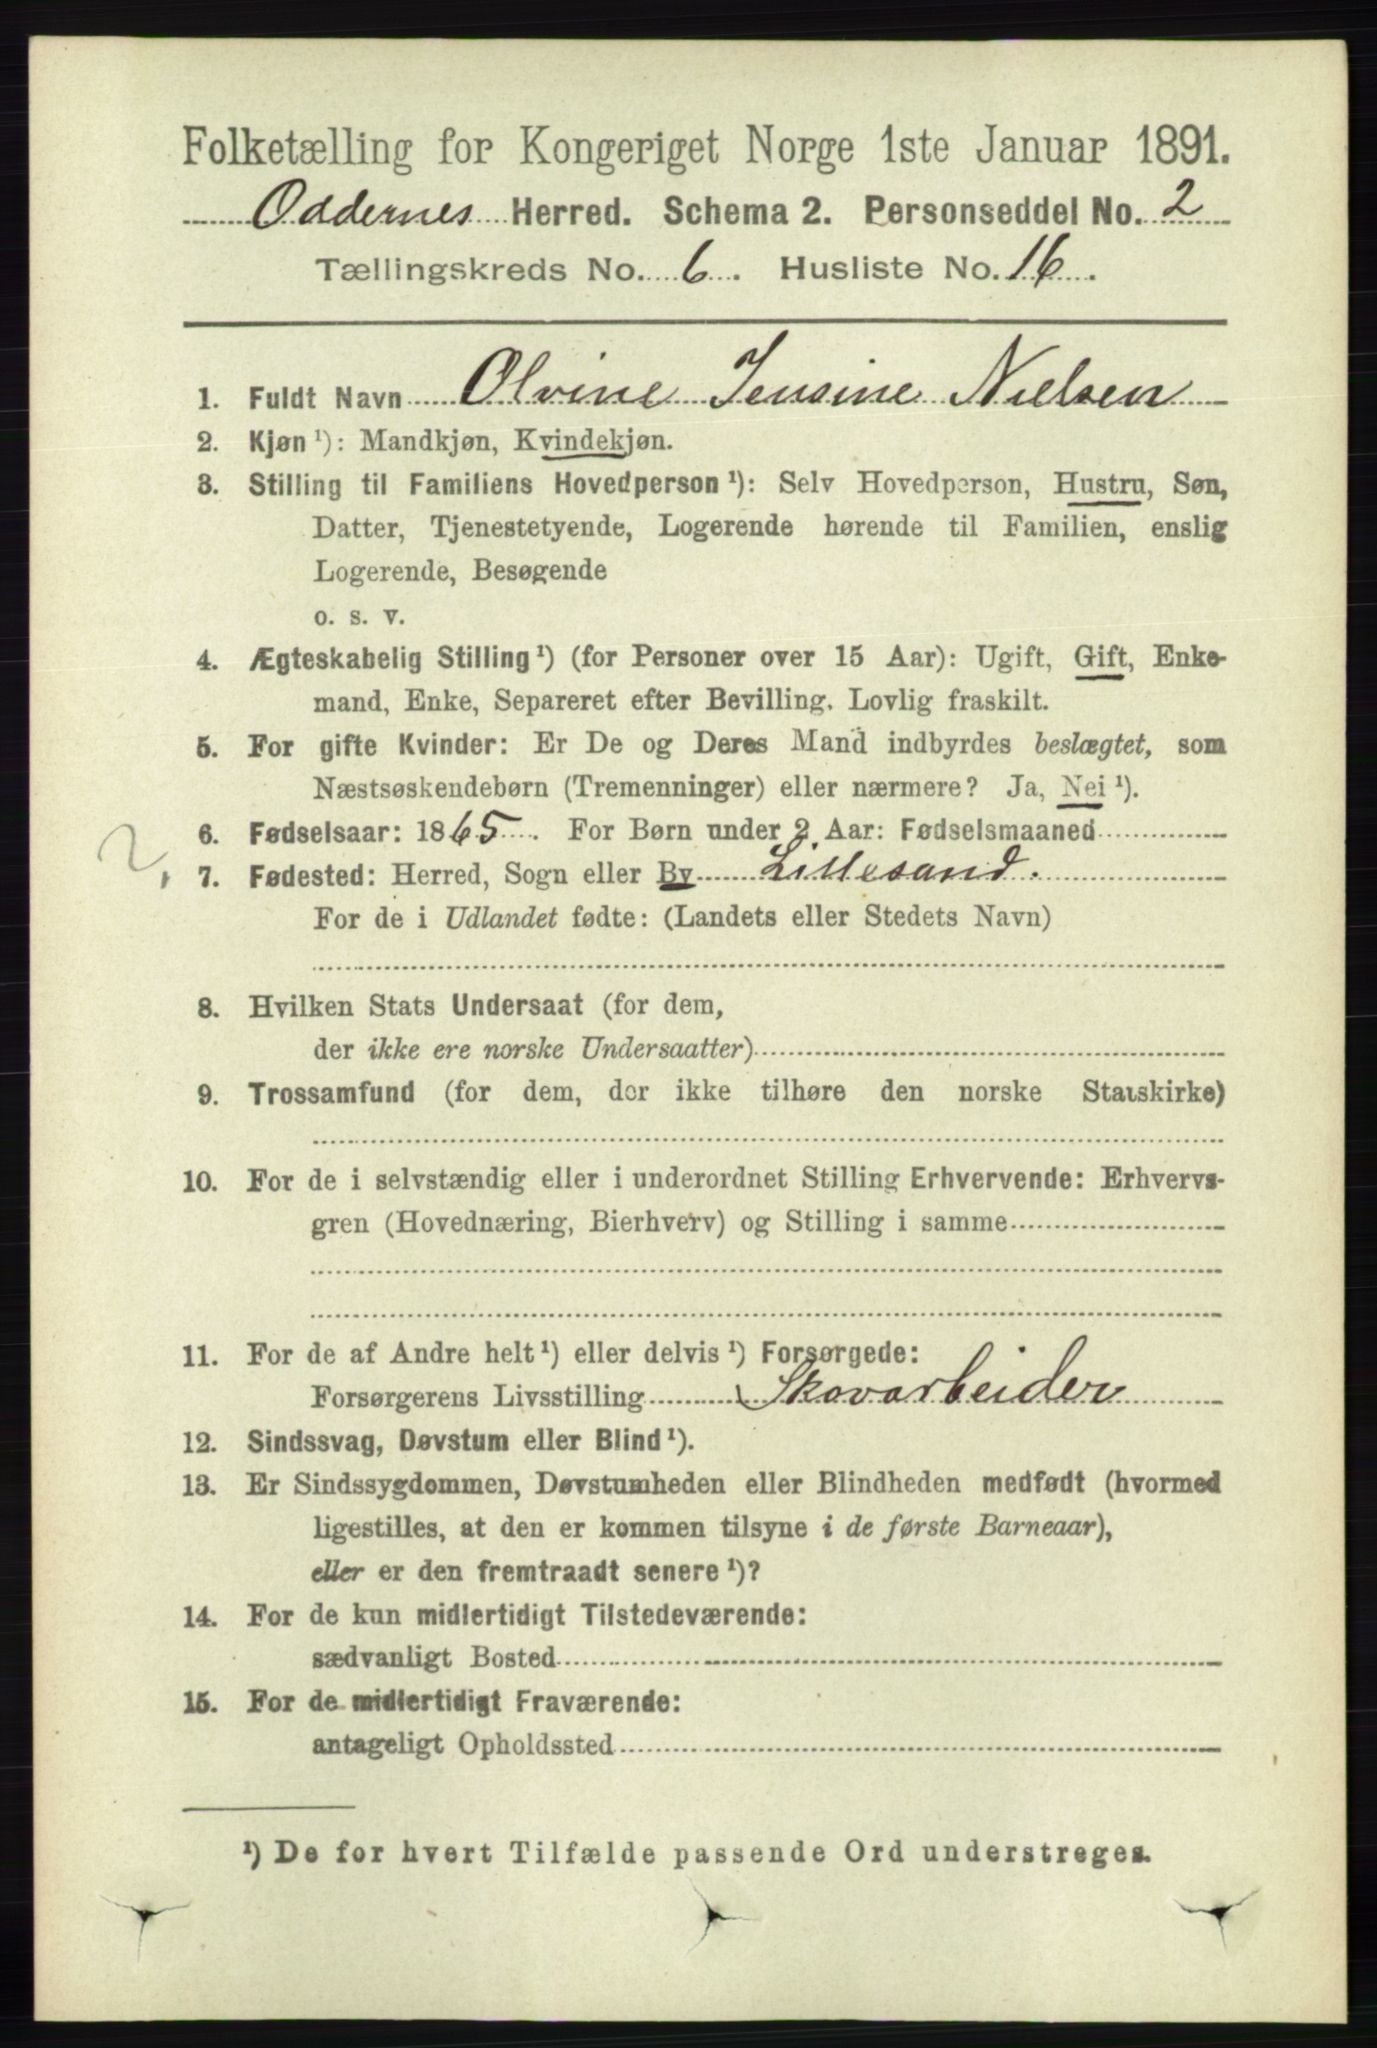 Folketælling for Kongeriget Norge 1ste Januar 1891.
Oddernes Herred. Schema 2. Personseddel No. 2
Tællingskreds No. 6. Husliste No. 16.
1. Fuldt Navn Olvine Jensine Nielsen
2. Kjøn ¹): Mandkjøn, Kvindekjøn.
3. Stilling til Familiens Hovedperson ¹): Selv Hovedperson, Hustru, Søn,
Datter, Tjenestetyende, Logerende hørende til Familien, enslig
Logerende, Besøgende
o. s. v.
4. Ægteskabelig Stilling ¹) (for Personer over 15 Aar): Ugift, Gift, Enke-
mand, Enke, Separeret efter Bevilling. Lovlig fraskilt.
5. For gifte Kvinder: Er De og Deres Mand indbyrdes beslægtet, som
Næstsøskendebørn (Tremenninger) eller nærmere? Ja, Nei ¹).
6. Fødselsaar: 1865. For Børn under 2 Aar: Fødselsmaaned
2, 7. Fødested: Herred, Sogn eller By Lillesand.
For de i Udlandet fødte: (Landets eller Stedets Navn)
8. Hvilken Stats Undersaat (for dem,
der ikke ere norske Undersaatter)
9. Trossamfund (for dem, der ikke tilhøre den norske Statskirke)
10. For de i selvstændig eller i underordnet Stilling Erhvervende: Erhvervs-
gren (Hovednæring, Bierhverv) og Stilling i samme
11. For de af Andre helt ¹) eller delvis ¹) Forsørgede:
Forsørgerens Livsstilling Skovarbeider
12. Sindssvag, Døvstum eller Blind ¹).
13. Er Sindssygdommen, Døvstumheden eller Blindheden medfødt (hvormed
ligestilles, at den er kommen tilsyne i de første Barneaar),
eller er den fremtraadt senere ¹)?
14. For de kun midlertidigt Tilstedeværende:
sædvanligt Bosted
15. For de midlertidigt Fraværende:
antageligt Opholdssted
¹) De for hvert Tilfælde passende Ord understreges.